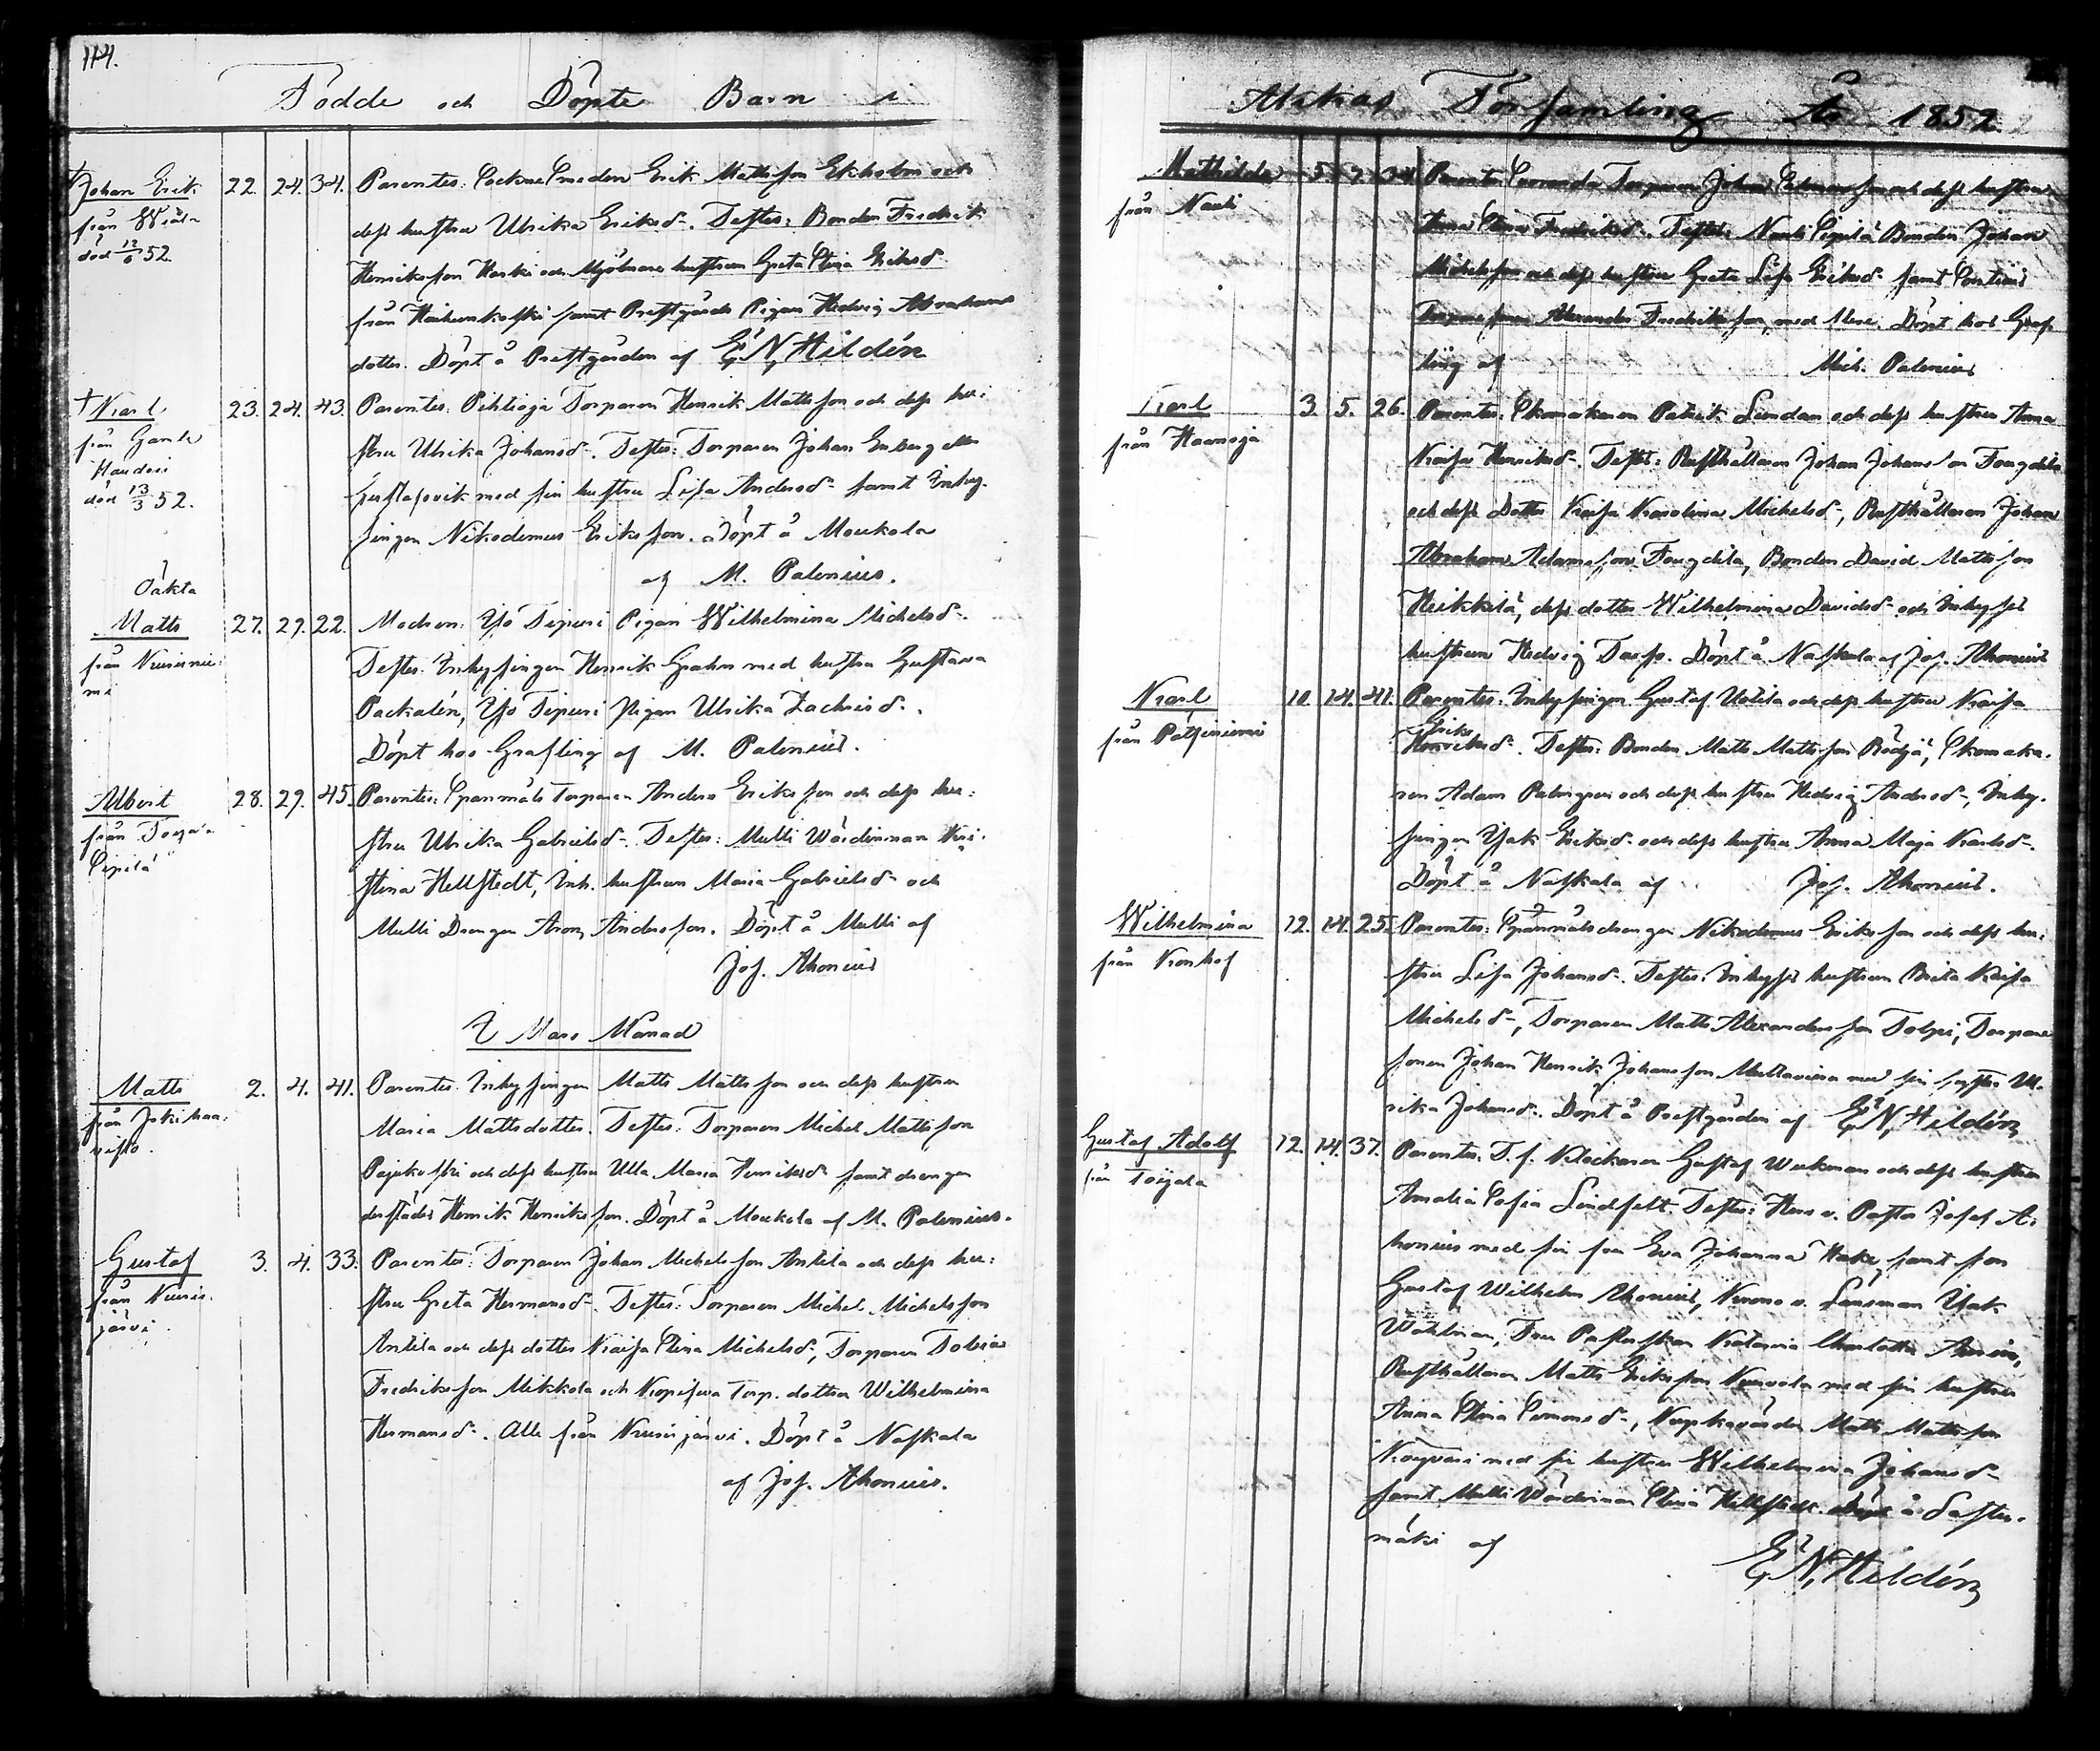 114.
Födde och Döpte Barn i
† Johan Erik
från Wiäla
död 12/6 52.
22. 24. 34. Parentes: Sockne Smeden Erik Mattsson Ekholm och
dess hustru Ulrika Eriksd. Testes: Bonden Fredrik
Henriksson Heiki och Mjölnare hustrun Greta Stina Eriksd
från samt Prestgårds Pigan Hedvig Abrahams
dotter. Döpt å Prestgården af E N Hildén
† Karl
från Gamle
död 13/3 52.
23. 24. 43. Parentes: Torparen Henrik Mattsson och dess hu:
stru Ulrika Johansd. Testes: Torparen Johan Enberg
Gustafsvik med sin hustru Lisa Andersd samt Inhy-
singen Nikodemus Eriksson. Döpt å Moukola
af M. Palenius.
Oäkta
Matts
från Kuurinie:
mi
27. 29. 22. Modren: Yso Sipuri Pigan Wilhelmina Michelsd.
Testes: Inhysingen Henrik Grahn med hustru Gustava
Packalén, Yso Sipuri Pigan Ulrika Zachrisd.
Döpt hos Grafling af M. Palenius.
Albert
från
Sipilä
28. 29. 45. Parentes: Spanmåls Torparen Anders Eriksson och dess hu:
stru Ulrika Gabrielsd. Testes: Multi Wärdinnan
stina Hellstedt, Inh. hustrun Maria Gabrielsd och
Multi Drengen Aron Andersson. Döpt å Multi af
Jos. Ahonius
I Mars Månad
Matts
från Jokihaa:
risto.
2. 4. 41. Parentes: Inhysingen Matts Mattsson och dess hustru
Maria Mattsdotter. Testes: Torparen Michel Mattsson
Pajukoski och dess hustru Ulla Maria Henriksd samt drengen
derstädes Henrik Henriksson. Döpt å Moukola af M. Palenius.
Gustaf
från Kuuris-
järvi.
3. 4. 33. Parentes: Torparen Johan Michelsson Anttila och dess hu:
stru Greta Hermansd. Testes: Torparen Michel Michelsson
Anttila och dess dotter Kaisa Stina Michelsd, Torparen Tobias
Fredriksson Mikkola och Torp. dottren Wilhelmina
Hermansd. Alla från Kuurisjärvi. Döpt å Naskala
af Jos. Ahonius.
Akkas Församling År 1852.
Mathilda
från Nauli
5. 7. 34. Parentes: Torparen Johan och dess hustru
Anna Stina Fredriksd. Testes: Nauli Sipilä Bonden Johan
Michelsson och dess hustru Greta Lisa Eriksd samt
Alexander Fredriksson, med flere. Döpt hos Graf-
ling af Mich. Palenius
Karl
från Haanoja
3. 5. 26. Parentes: Skomakaren Patrik Lundan och dess hustru Anna
Kaisa Henriksd. Testes: Rusthållaren Johan Johansson Fougdila
och dess Dotter Kaisa Karolina Michelsd, Rusthållaren Johan
Abraham Adamsson Fougdila, Bonden David Mattsson
Heikkilä, dess dotter Wilhelmina Davidsd och Inhyses
hustrun Hedvig Döpt å Naskala af Jos. Ahonius
Karl
från Patjniemi
10. 14. 41. Parentes: Inhysingen Gustaf Uotila och dess hustru Kaisa
Eriks
Henriksd. Testes: Bonden Matts Mattsson Rödjä, Skomaka-
ren Adam Palmgren och dess hustru Hedvig Andersd, Inhy-
singen Isak Eriksd och dess hustru Anna Maja Karlsd.
Döpt å Naskala af Jos. Ahonius.
Wilhelmina
från Kronhof
12. 14. 25. Parentes: Spanmålsdrengen Nikodemus Eriksson och dess hu:
stru Lisa Johansd. Testes: Inhyses hustrun Brita Kaisa
Michelsd, Torparen Matts Alexandersson Tolpi, Torpare
sonen Johan Henrik Johansson med sin syster Ul-
rika Johansd. Döpt å Prestgården af E N Hildén
Gustaf Adolf
från Toijala
12. 14. 37. Parentes: T. f. Klockaren Gustaf Weckman och dess hustru
Amalia Sofia Lindfelt. Testes: Herr v. Pastor Josef A:
honius med sin fru Eva Johanna Hake samt son
Gustaf Wilhelm Ahonius, Krono v. Länsman Isak
Wahlman, Fru Pastorskan Katarina Charlotta
Rusthållaren Matts Eriksson Kurvola med sin hustru
Anna Stina Simonsd, Kyrkovärden Matts Mattsson
med sin hustru Wilhelmina Johansd
samt Multi Wärdinnan Stina Hellstedt. Döpt å Saste-
mäki af
E N Hildén